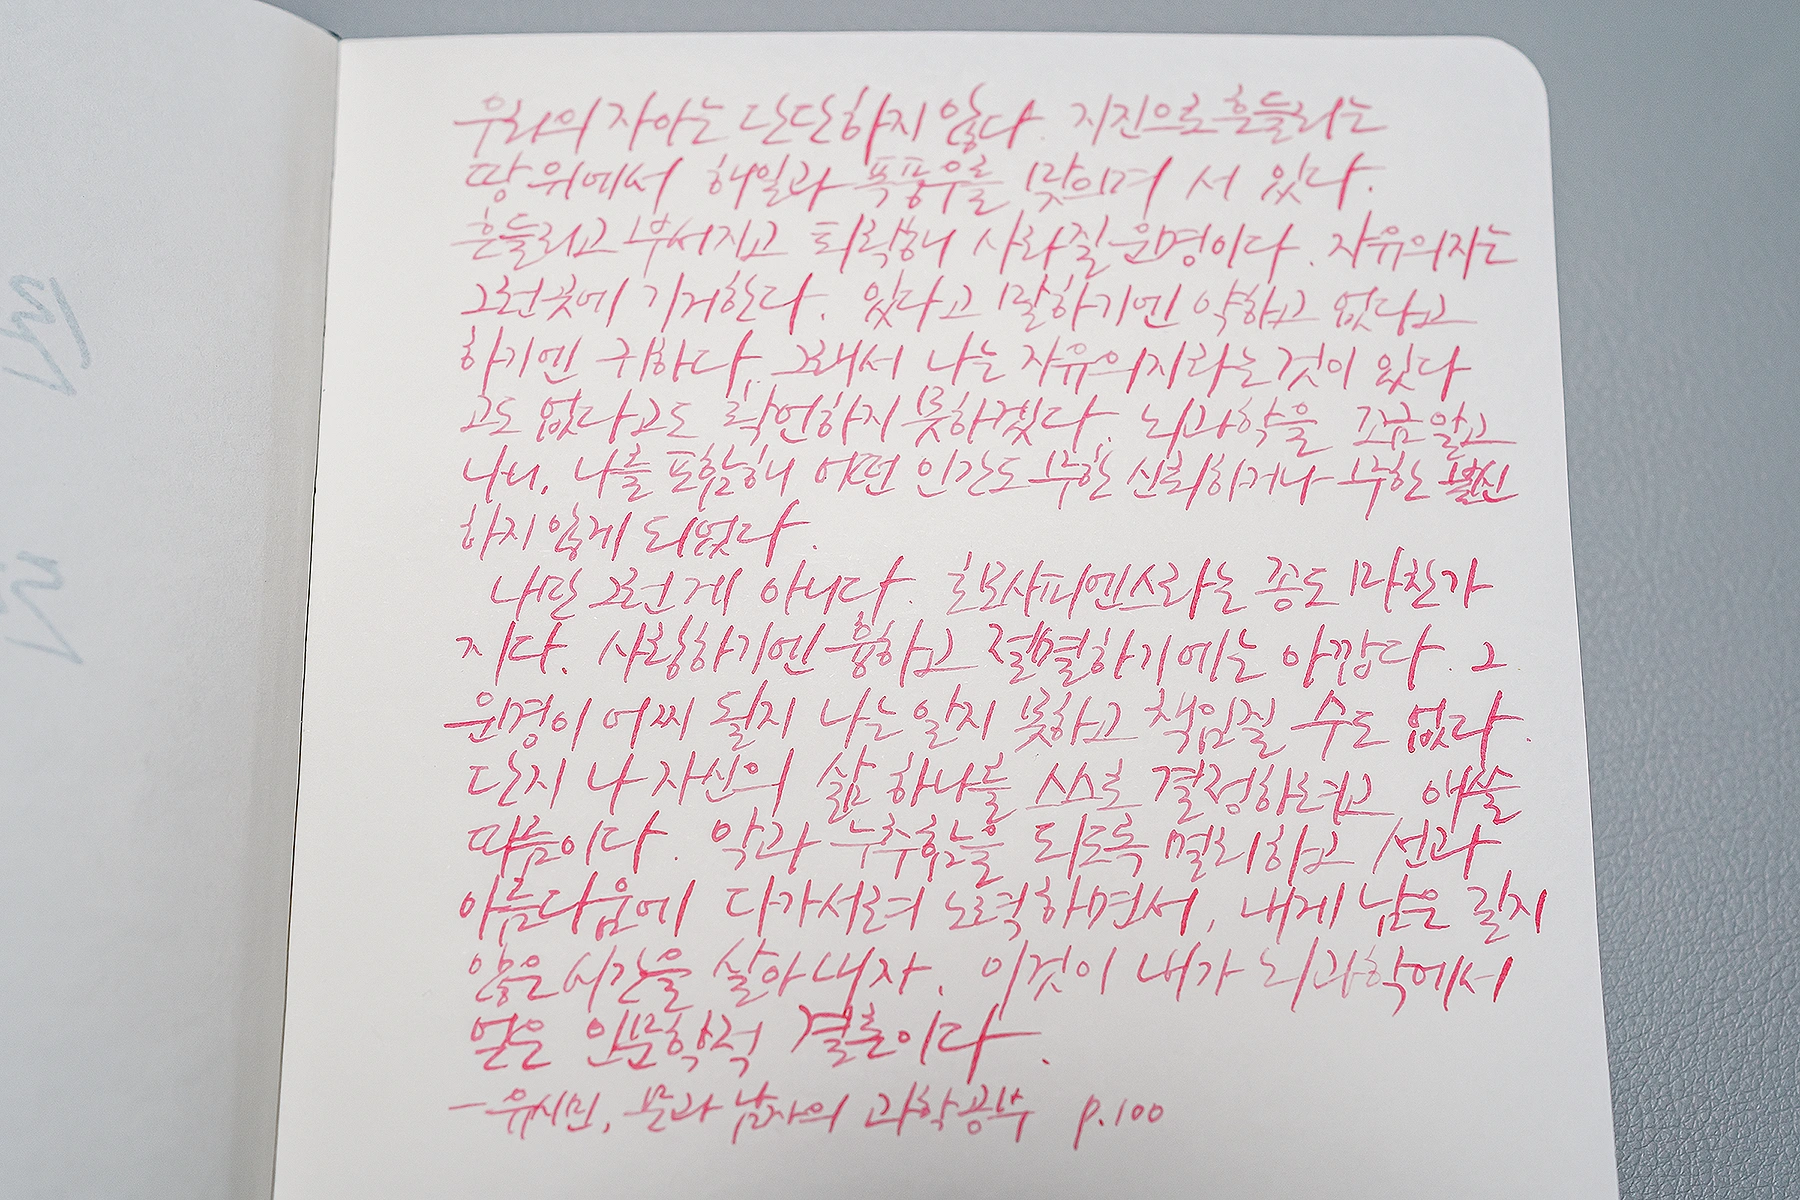 우리의 자아는 단단하지 않다. 지진으로 흔들리는
땅 위에서 해일과 폭풍우를 맞으며 서 있다.
흔들리고 부서지고 퇴락해 사라질 운명이다. 자유의지는
그런 곳에 기거한다. 있다고 말하기엔 약하고 없다고
하기엔 귀하다. 그래서 나는 자유의지라는 것이 있다
고도 없다고도 확언하지 못하겠다. 뇌과학을 조금 알고
나니, 나를 포함해 어떤 인간도 무한 신뢰하거나 무한 불신
하지 않게 되었다.
나만 그런 게 아니다. 호모사피엔스라는 종도 마찬가
지다. 사랑하기엔 흉하고 절멸하기에는 아깝다. 그
운명이 어찌 될지 나는 알지 못하고 책임질 수도 없다.
단지 나 자신의 삶 하나를 스스로 결정하려고 애쓸
따름이다. 악과 누추함을 되도록 멀리하고 선과
아름다움에 다가서려 노력하면서, 내게 남은 길지
않은 시간을 살아내자. 이것이 내가 뇌과학에서
얻은 인문학적 결론이다.
— 유시민, 문과 남자의 과학공부 p.100